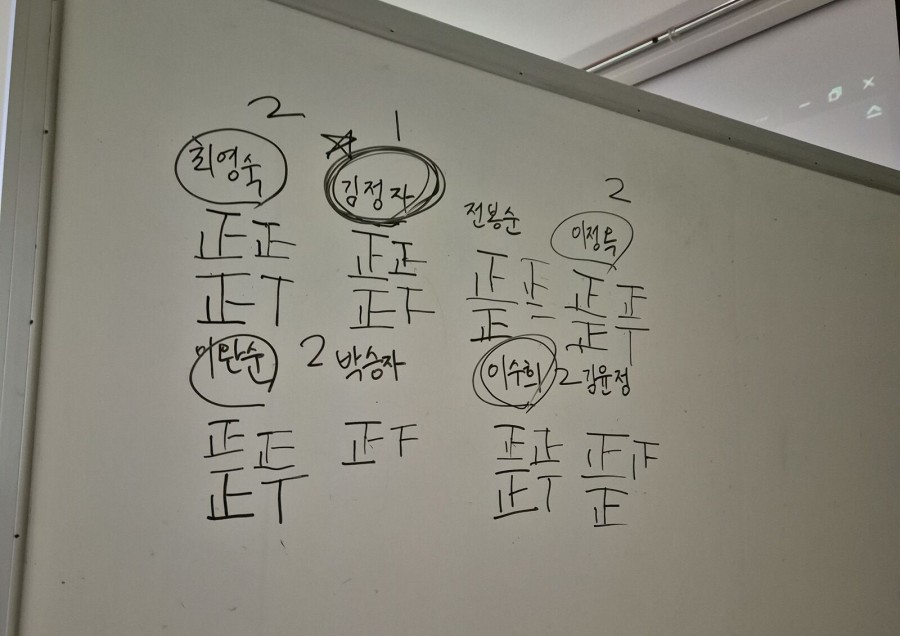 2 1
최영숙 ☆ 김정자
正正 正正
正丅 正下
2
전봉순 이정옥
正正 正正
正一 正丅
2 박승자 이수희 2 김윤정
正正 正下 正正 正下
正丅 正丅 正